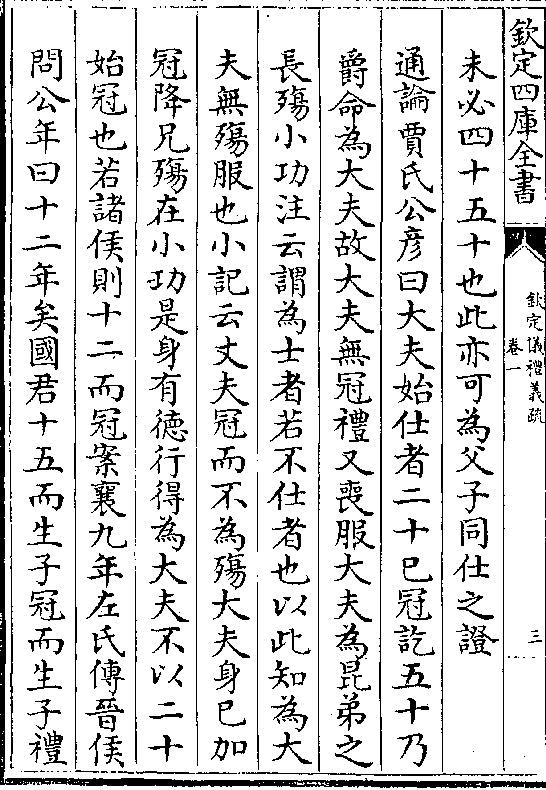 欽定四庫全書
欽定儀禮義疏
卷一
三
未必四十五十也此亦可為父子同仕之證
通論賈氏公彥曰大夫始仕者二十已冠訖五十乃
爵命為大夫故大夫無冠禮又喪服大夫為昆弟之
長殤小功注云謂為士者若不仕者也以此知為大
夫無殤服也小記云丈夫冠而不為殤大夫身已加
冠降兄殤在小功是身有德行得為大夫不以二十
始冠也若諸侯則十二而冠案襄九年左氏傳晉侯
問公年曰十二年矣國君十五而生子冠而生子禮